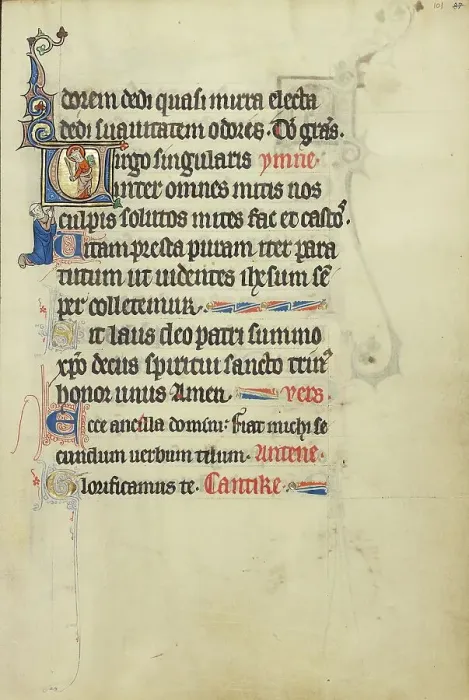 101 87
dorem dedi quasi mirra electa
dedi suauitatem odoris. Dō gr̄as.
Uirgo singularis ymne.
inter omnes mitis nos
culpis solutos mites fac et castoꝰ.
Uitam presta puram iter para
tutum ut uidentes ihesum sē
per colletemur.
Sit laus deo patri summo
xp̄o decus spiritui sancto trinꝰ
honor unus Amen. vers.
Ecce ancilla domini: Fiat michi se
cundum uerbum tuum. Antene.
Glorificamus te. Cantike.